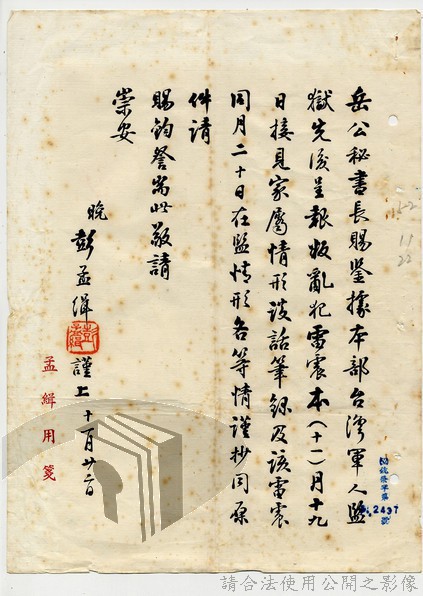 岳公秘書長賜鑒據本部台灣軍人監
獄先後呈報叛亂犯雷震本(十一)月十九
日接見家屬情形談話筆錄及該雷震
同月二十日在監情形各等情謹抄同原
件請
賜鈞詧耑此敬請
崇安
晚彭孟緝謹上十一月廿二日
孟緝用箋
2437
號
152
11
22
請合法使用公開之影像